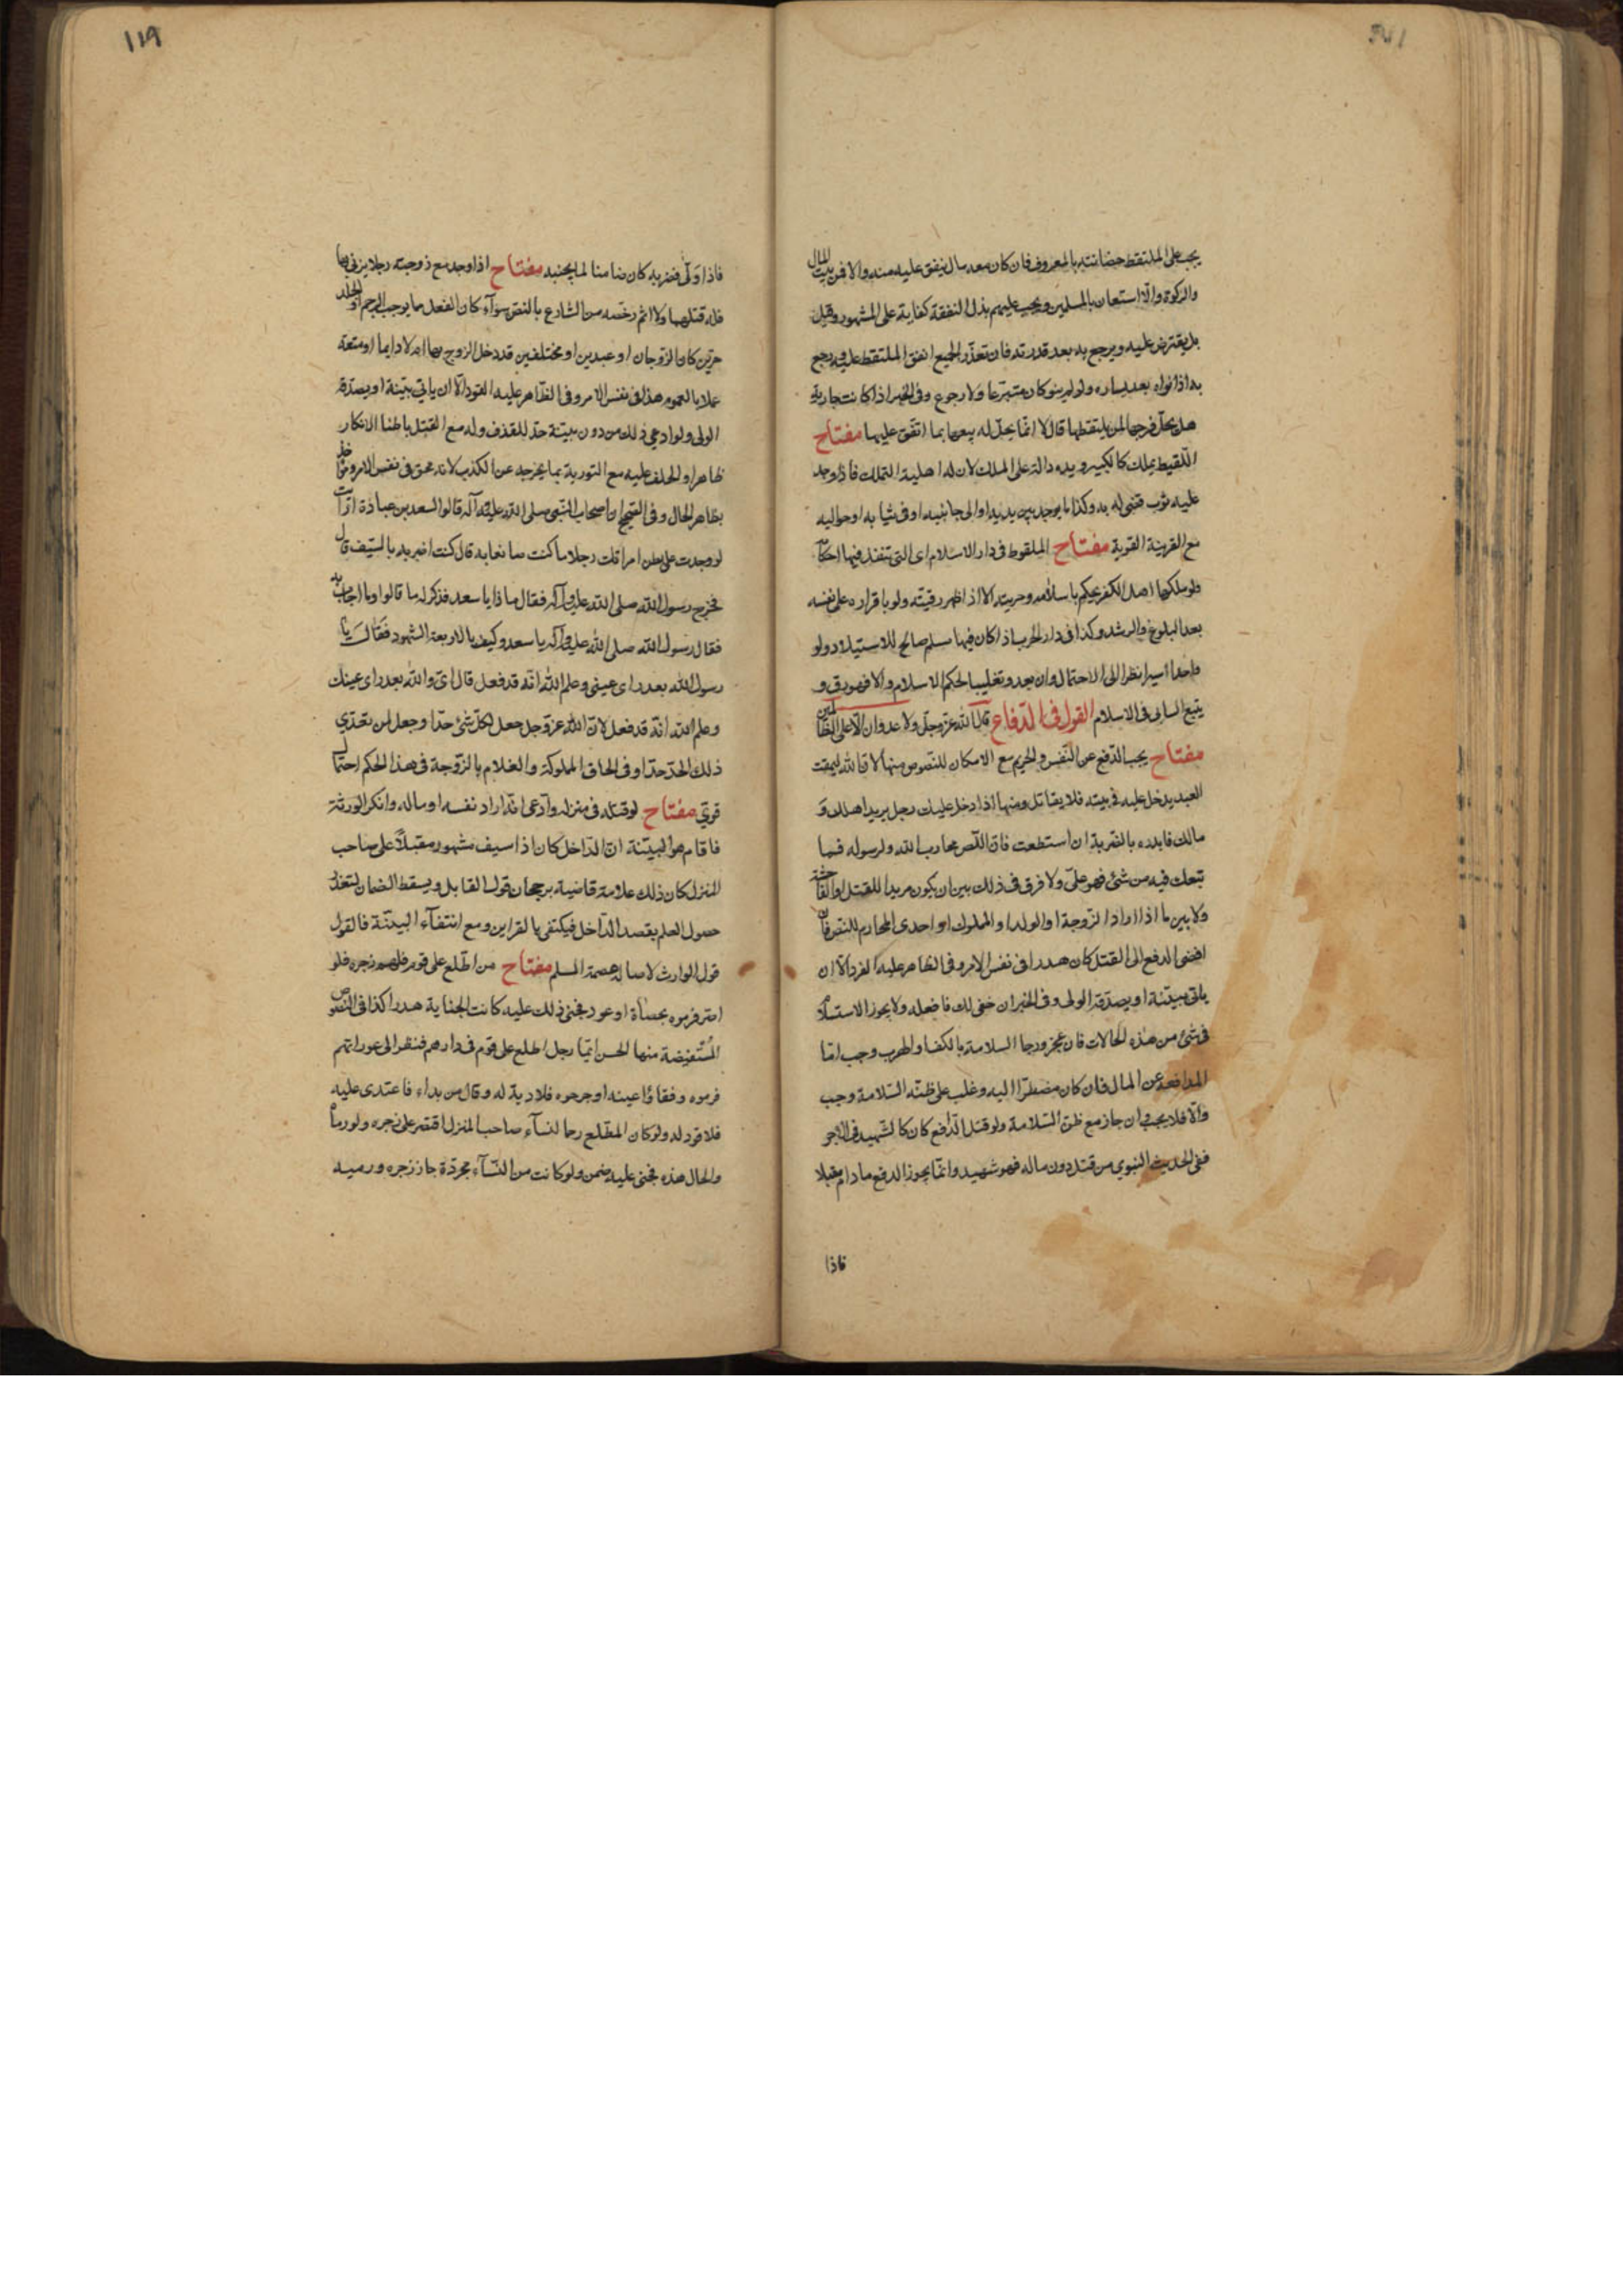 يجب على الملتقط حضانته بالمعروف فان كان معه مال ينفق عليه منه والا فمن بيت المال
والزكوة والّا استعان بالمسلمين ويجب عليهم بذل النفقة كفاية على المشهور وقيل
بل يقترض عليه ويرجع به بعد قدرته فان تعذّر الجميع انفق الملتقط عليه ورجع
به اذا نواه بعد يساره ولو لم ينو كان متبرّعا ولا رجوع وفى الخبر اذا كانت جارية
هل يحلّ فرجها لمن يلتقطها قال لا انّما يحلّ له بيعها بما انفق عليها مفتاح
اللّقيط يملك كالكبير ويده دالة على الملك لان له اهلية التملك فاذا وجد
عليه ثوب قضى له به وكذا ما يوجد بين يديه او الى جانبيه او فى ثيابه او حواليه
مع القرينة القوية مفتاح الملقوط فى دار الاسلام اى التى تنفذ فيها احكامه
ولو ملكها اهل الكفر يحكم باسلامه وحريته الا اذا ظهر رقيته ولو باقراره على نفسه
بعد البلوغ والرشد وكذا فى دار الحرب اذا كان فيها مسلم صالح للاستيلاد ولو
واحدا أسيرا نظرا الى الاحتمال وان بعد وتغليبا لحكم الاسلام والا فهو رق و
يتبع السابى فى الاسلام القول فى الدفاع قال الله عزّ وجلّ ولا عدوان الّا على الظالمين
مفتاح يجب الدّفع عن النّفس والحريم مع الامكان للنّصوص منها ان الله ليمقت
العبد يدخل عليه فى بيته فلا يقاتل ومنها اذا دخل عليك رجل يريد اهلك و
مالك فابدره بالضّربة ان استطعت فانّ اللّص محارب لله ولرسوله فما
تبعك فيه من شئ فهو علىّ ولا فرق فى ذلك بين ان يكون مريدا للقتل او الفاحشة
ولا بين ما اذا اراد الزّوجة او الولد او المملوك او احدى المحارم للنصوص فان
افضى الدفع الى القتل كان هدرا فى نفس الامر وفى الظاهر عليه القود الّا ان
ياتى ببيّنة او يصدّقه الولى وفى الخبر ان خفى لك فافعله ولا يجوز الاستسلام
فى شئ من هذه الحالات فان عجز ورجا السلامة بالكف او الهرب وجب امّا
المدافعة عن المال فان كان مضطرّا اليه وغلب على ظنّه السّلامة وجب
والّا فلا يجب وان جاز مع ظنّ السّلامة ولو قتل الدّافع كان كالشّهيد فى الاجر
ففى الحديث النبوي من قتل دون ماله فهو شهيد وانّما يجوز الدفع ما دام مقبلا
فاذا
١١٩
فاذا ولّى فضربه كان ضامنا لما يجنيه مفتاح اذا وجد مع زوجته رجلا يزنى بها
فله قتلهما ولا اثم رخّصه من الشارع بالنصّ سوآء كان الفعل مما يوجب الرجم او الجلد
حرّين كان الزّوجان او عبدين او مختلفين قد دخل الزوج بها ام لا دايما او متعة
عملا بالعموم هذا فى نفس الامر وفى الظّاهر عليه القود الّا ان ياتى ببيّنة او يصدّقه
الولى ولو ادعى ذلك من دون بيّنة حدّ للقذف وله مع القتل باطنا الانكار
ظاهرا والحلف عليه مع التورية بما يخرجه عن الكذب لانه محق فى نفس الامر مؤاخذ
بظاهر الحال وفى الصّحيح ان اصحاب النّبى صلى الله عليه وآله قالوا لسعد بن عبادة ارأيت
لو وجدت على بطن امراتك رجلا ما كنت صانعا به قال كنت اضربه بالسّيف قال
فخرج رسول الله صلى الله عليه وآله فقال ماذا يا سعد فذكر له ما قالوا وما اجاب به
فقال رسول الله صلى الله عليه وآله يا سعد وكيف بالاربعة الشهود فقال يا
رسول الله بعد راى عينى وعلم الله انّه قد فعل قال اى والله بعد راى عينك
وعلم الله انّه قد فعل لانّ الله عزّ وجل جعل لكلّ شئ حدّا وجعل لمن تعدّى
ذلك الحدّ حدّا وفى الحاق المملوكة والغلام بالزّوجة فى هذا الحكم احتمال
قوىّ مفتاح لو قتله فى منزله وادّعى انّه اراد نفسه او ماله وانكر الورثة
فاقام هو البيّنة انّ الدّاخل كان ذا سيف مشهور مقبلاً على صاحب
المنزل كان ذلك علامة قاضية برجحان قول القاتل ويسقط الضمان لتعذّر
حصول العلم بقصد الدّاخل فيكتفى بالقراين ومع انتفآء البيّنة فالقول
قول الوارث لاصالة عصمة المسلم مفتاح من اطّلع على قوم فلهم زجره فلو
اصر فرموه بحصاة او عود فجنى ذلك عليه كانت الجناية هدرا كذا فى النصوص
المستفيضة منها الحسن ايّما رجل اطلع على قوم فى دارهم فنظر الى عوراتهم
فرموه وفقاؤا عينه او جرحوه فلا دية له وقال من بداء فاعتدى عليه
فلا قود له ولو كان المطّلع رحما لنسآء صاحب المنزل اقتصر على زجره ولو رماه
والحال هذه فجنى عليه ضمن ولو كانت من النّسآء مجرّدة جاز زجره ورميه